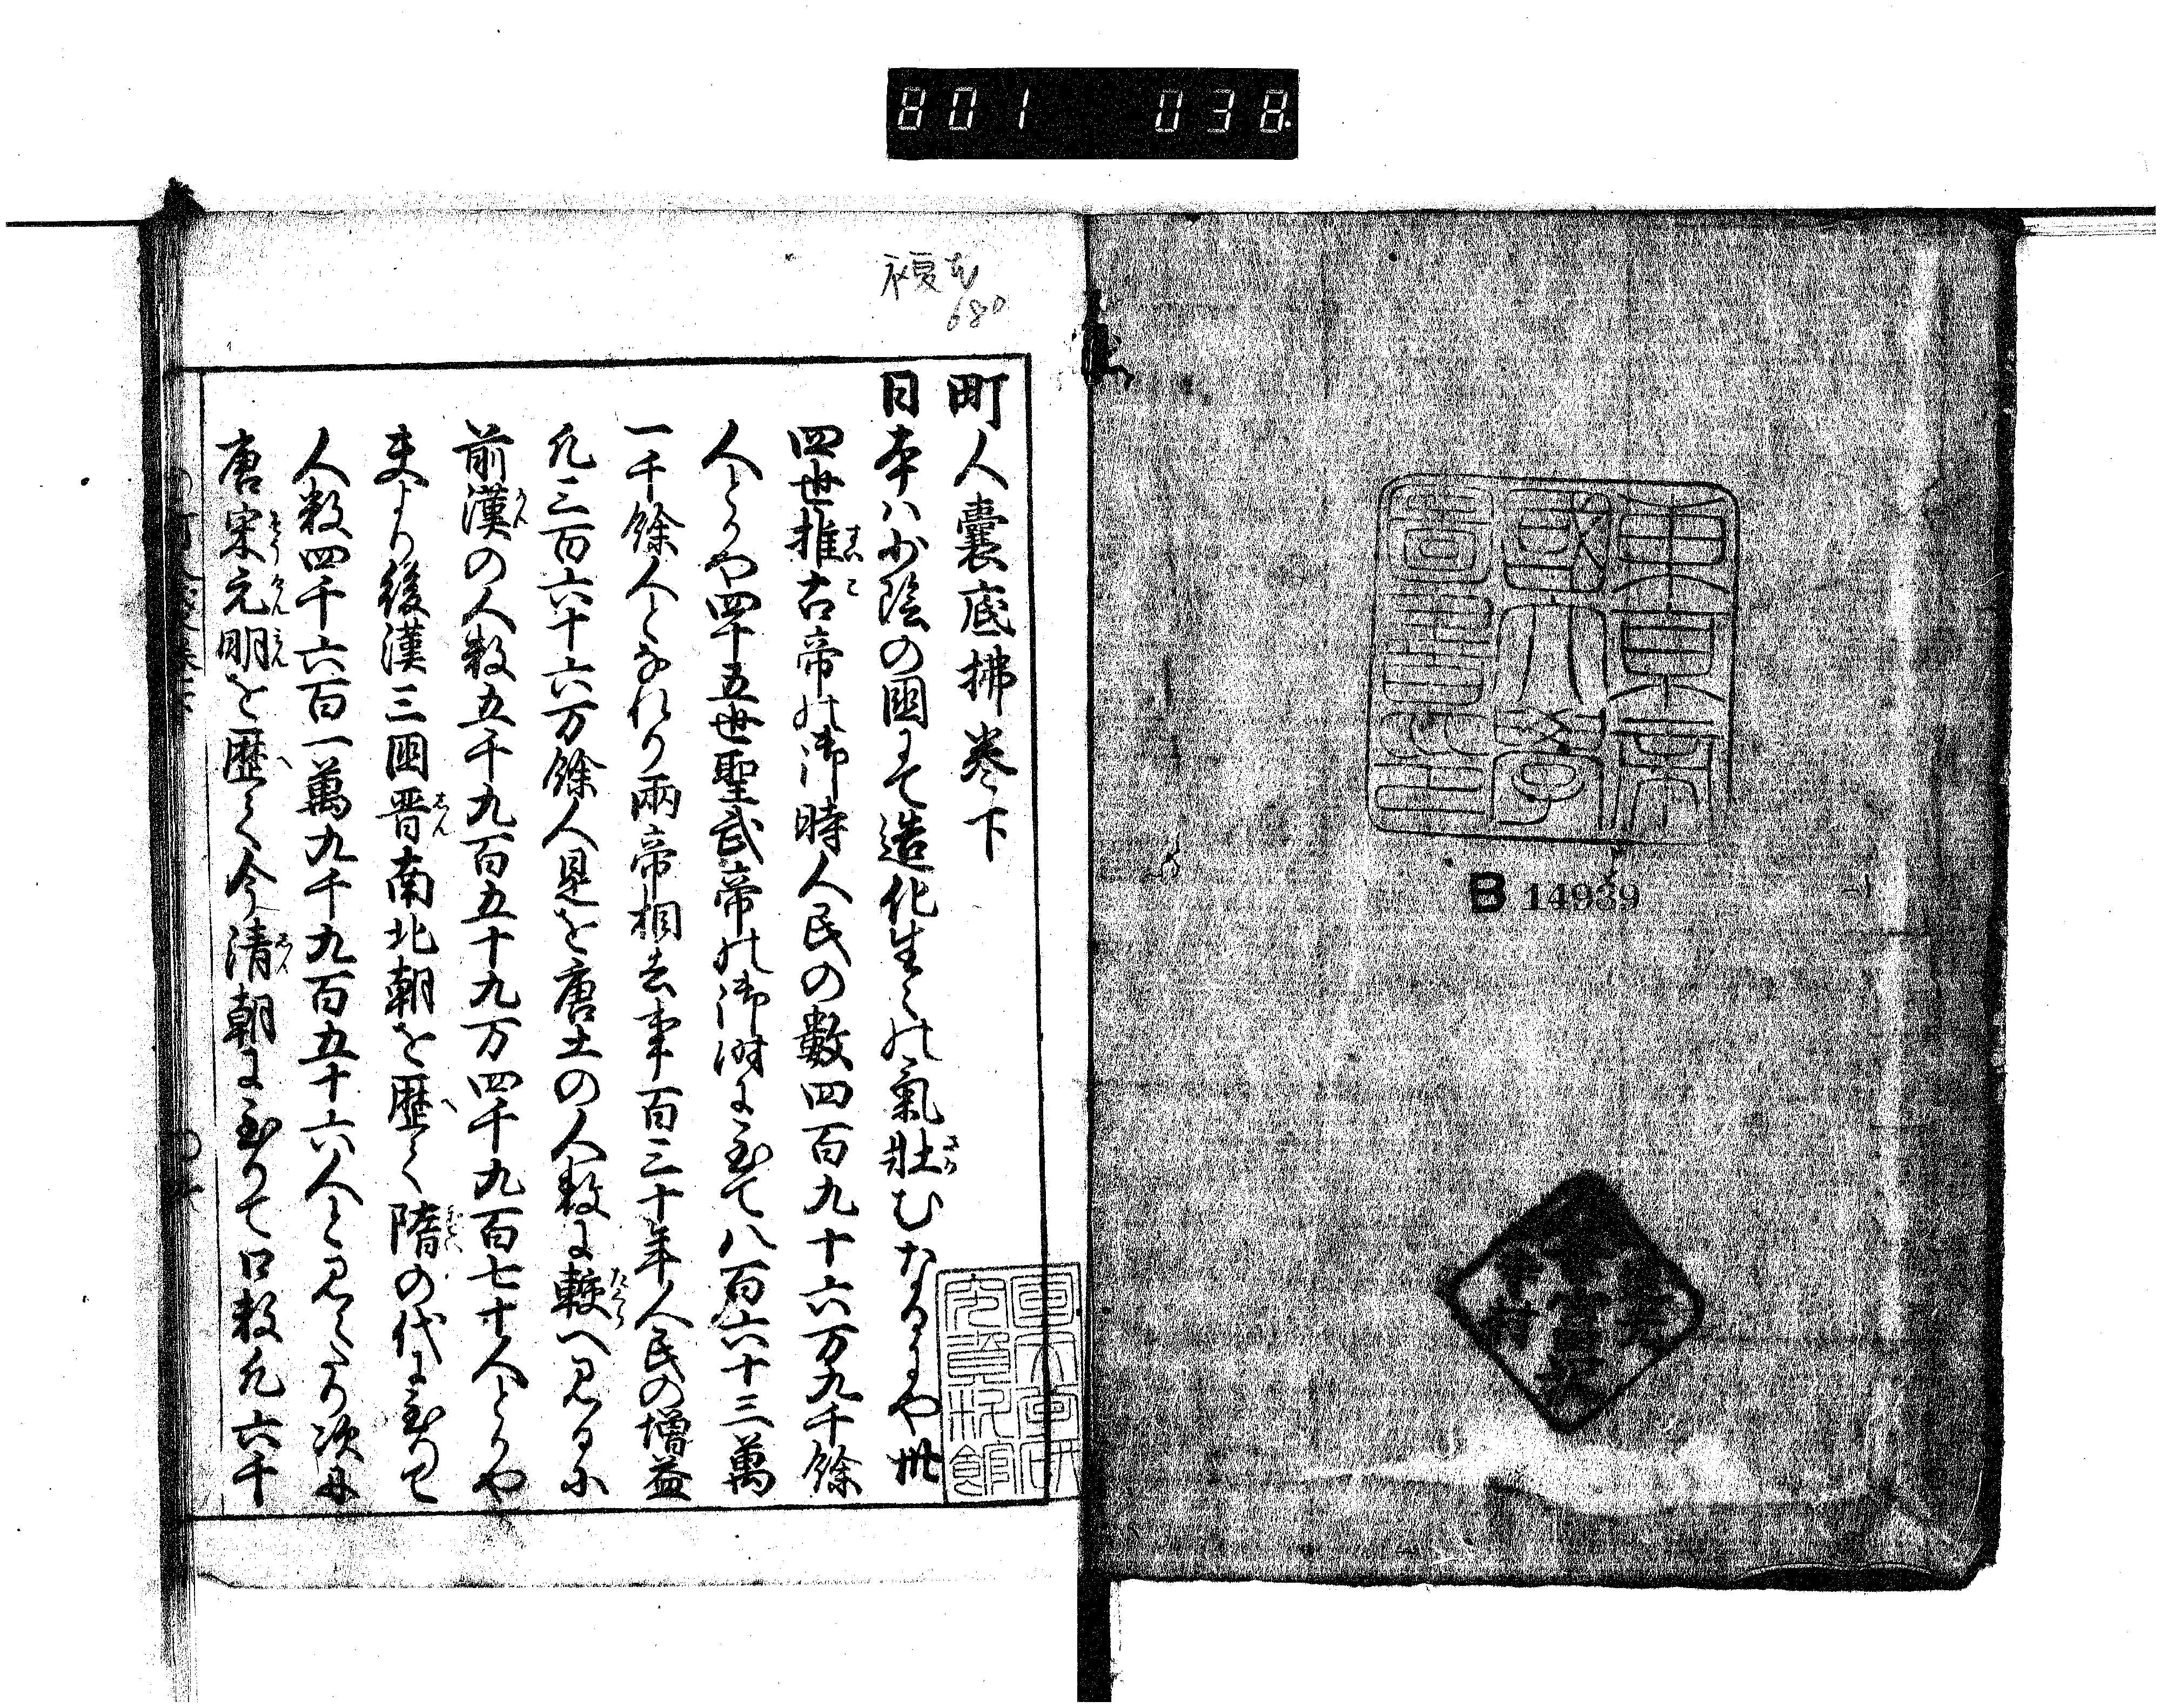 801 038
東京帝
國大學
圖書印
B 14939
複
680
町人囊底拂巻下
日本ハ少陰の國にて造化生々の氣壮むなるにや丗
四世推古帝の御時人民の數四百九十六万九千餘
人とかや四十五世聖武帝の御時に至て八百六十三萬
一千餘人となれり兩帝相去事百三十年人民の増益
凡三百六十六万餘人是を唐土の人数に較へ見るに
前漢の人数五千九百五十九万四千九百七十人とかや
夫より後漢三国晋南北朝を歴て隋の代に至て
人数四千六百一萬九千九百五十六人と見へたり次に
唐宋元明を歴て今清朝に至りて口数凡六千